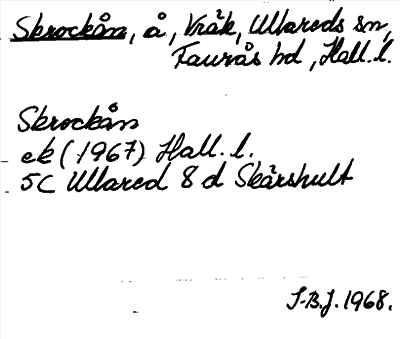 Skrockån, å, Vråk, Ullareds sn,
Faurås hd, Hall. l.
Skrockån
ek (1967) Hall. l.
5C Ullared 8 d Skärshult
S.B.J. 1968.